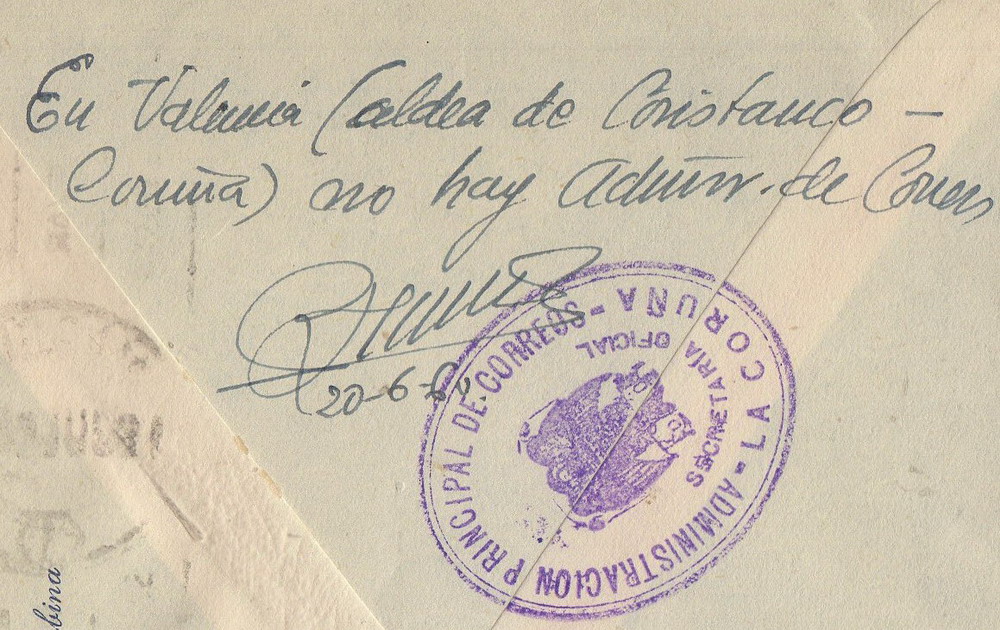 En Valencia (aldea de Coristanco –
Coruña) no hay Admón. de Correos
20-6-64.
ADMINISTRACION PRINCIPAL DE CORREOS - LA CORUÑA -
SECRETARÍA
OFICIAL
bina